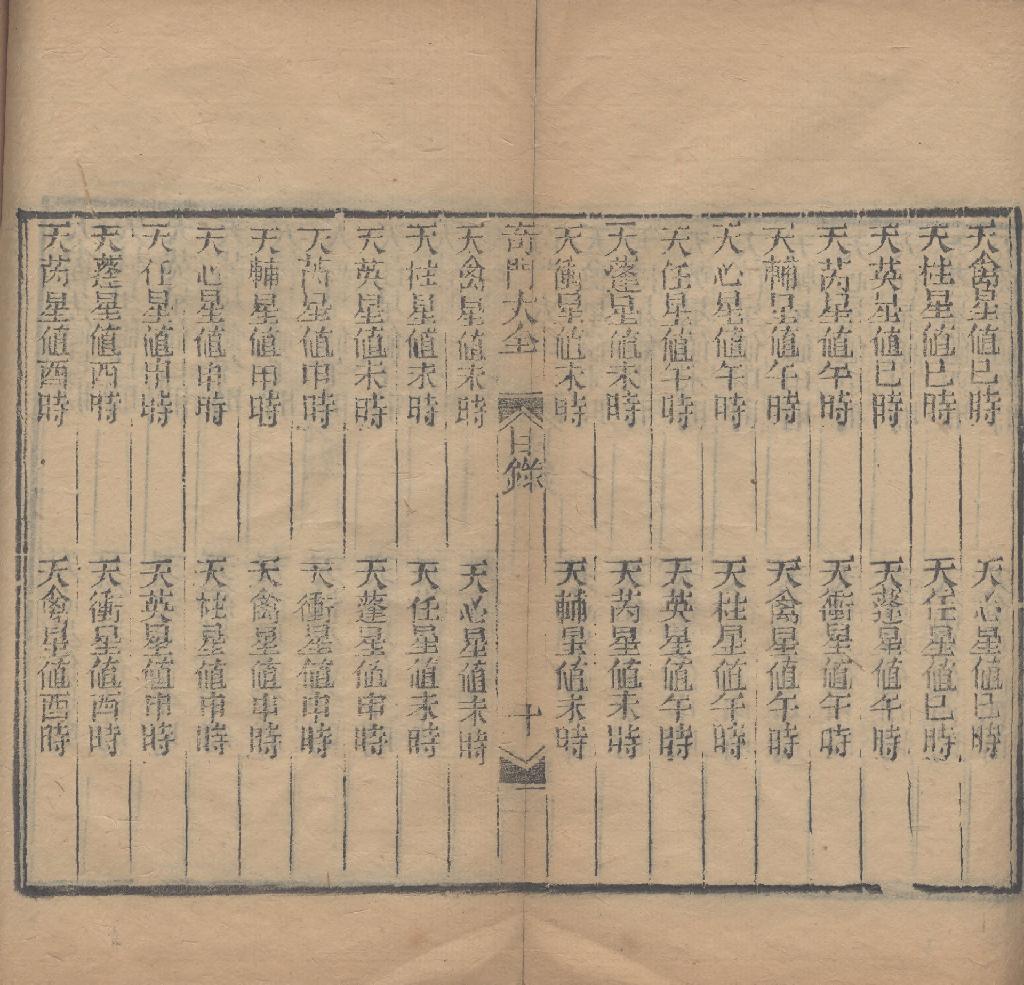 天禽星值巳時
天心星值巳時
天柱星值巳時
天任星值巳時
天英星值巳時
天蓬星值午時
天芮星值午時
天衝星值午時
天輔星值午時
天禽星值午時
天心星值午時
天柱星值午時
天任星值午時
天英星值午時
天蓬星值未時
天芮星值未時
天衝星值未時
天輔星值未時
奇門大全
目錄
十
天禽星值未時
天心星值未時
天柱星值未時
天任星值未時
天英星值未時
天蓬星值申時
天芮星值申時
天衝星值申時
天輔星值申時
天禽星值申時
天心星值申時
天柱星值申時
天任星值申時
天英星值申時
天蓬星值酉時
天衝星值酉時
天芮星值酉時
天禽星值酉時